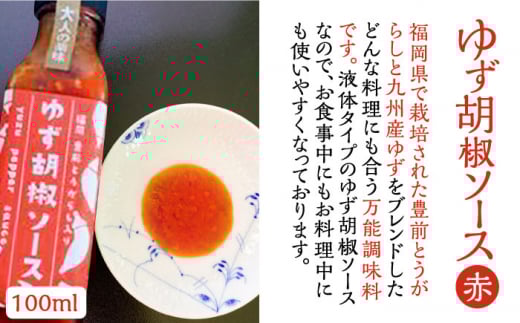 ゆず胡椒ソース 赤
福岡県で栽培された豊前とうが
らしと九州産ゆずをブレンドした
どんな料理にも合う万能調味料
です。液体タイプのゆず胡椒ソース
なので、お食事中にもお料理中に
も使いやすくなっております。
大人の風味
福岡 豊前とうがらし入り
ゆず胡椒ソース
yuzu pepper sauce
100ml